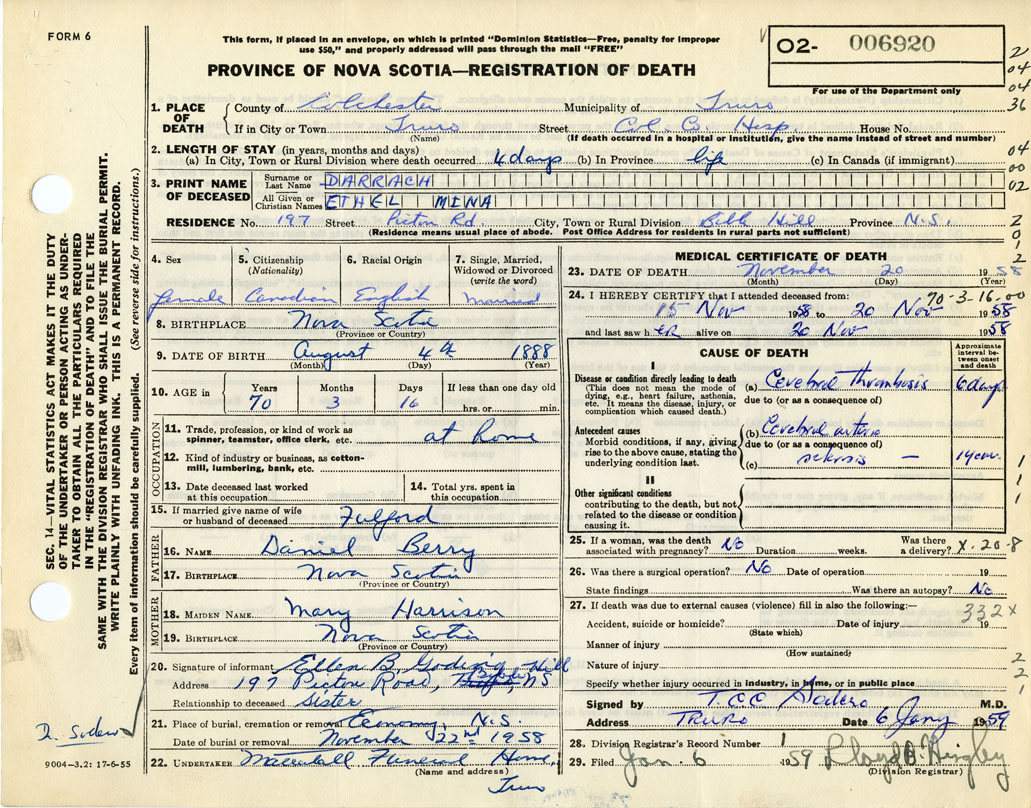 FORM 6
This form, if placed in an envelope, on which is printed "Dominion Statistics—Free, penalty for improper
use $50," and properly addressed will pass through the mail "FREE"
O2- 006920
For use of the Department only
PROVINCE OF NOVA SCOTIA—REGISTRATION OF DEATH
21
04
04
36
04
00
02
2
0
1
2
2
1. PLACE OF DEATH
County of Colchester Municipality of Truro
If in City or Town Truro Street Col. Co. Hosp. House No.
(Name) (If death occurred in a hospital or institution, give the name instead of street and number)
2. LENGTH OF STAY (in years, months and days)
(a) In City, Town or Rural Division where death occurred 4 days (b) In Province life (c) In Canada (if immigrant)
3. PRINT NAME OF DECEASED
Surname or Last Name DARRACH
All Given or Christian Names ETHEL MINA
RESIDENCE No. 197 Street Picton Rd. City, Town or Rural Division Bible Hill Province N.S.
(Residence means usual place of abode. Post Office Address for residents in rural parts not sufficient)
SEC. 14—VITAL STATISTICS ACT MAKES IT THE DUTY
OF THE UNDERTAKER OR PERSON ACTING AS UNDER-
TAKER TO OBTAIN ALL THE PARTICULARS REQUIRED
IN THE "REGISTRATION OF DEATH" AND TO FILE THE
SAME WITH THE DIVISION REGISTRAR WHO SHALL ISSUE THE BURIAL PERMIT.
WRITE PLAINLY WITH UNFADING INK. THIS IS A PERMANENT RECORD.
Every item of information should be carefully supplied. (See reverse side for instructions.)
4. Sex
female
5. Citizenship
(Nationality)
Canadian
6. Racial Origin
English
7. Single, Married, Widowed or Divorced
(write the word)
Married
8. BIRTHPLACE Nova Scotia
(Province or Country)
9. DATE OF BIRTH August 4th 1888
(Month) (Day) (Year)
10. AGE in
Years Months Days If less than one day old
70 3 16 hrs. or min.
OCCUPATION
11. Trade, profession, or kind of work as
spinner, teamster, office clerk, etc. at Home
12. Kind of industry or business, as cotton-
mill, lumbering, bank, etc.
13. Date deceased last worked
at this occupation
14. Total yrs. spent in
this occupation
15. If married give name of wife
or husband of deceased Fulford
FATHER
16. NAME Daniel Berry
17. BIRTHPLACE Nova Scotia
(Province or Country)
MOTHER
18. MAIDEN NAME Mary Harrison
19. BIRTHPLACE Nova Scotia
(Province or Country)
20. Signature of informant Ellen B. Goding
Address 197 Picton Road, Bible Hill NS
Relationship to deceased Sister
21. Place of burial, cremation or removal Economy, N.S.
Date of burial or removal November 22nd 1958
22. UNDERTAKER Mattatall Funeral Home,
(Name and address)
Truro
9004—3.2: 17-6-55
MEDICAL CERTIFICATE OF DEATH
23. DATE OF DEATH November 20 1958
(Month) (Day) (Year)
24. I HEREBY CERTIFY that I attended deceased from: 70-3-16-00
15 Nov 1958 to 20 Nov 1958
and last saw h ER alive on 20 Nov 1958
CAUSE OF DEATH
Approximate interval between onset and death
I
Disease or condition directly leading to death
(This does not mean the mode of
dying, e.g., heart failure, asthenia,
etc. It means the disease, injury, or
complication which caused death.)
(a) Cerebral thrombosis 6 days
due to (or as a consequence of)
Antecedent causes
Morbid conditions, if any, giving
rise to the above cause, stating the
underlying condition last.
(b) Cerebral arterio
due to (or as a consequence of)
(c) sclerosis —
II
Other significant conditions
contributing to the death, but not
related to the disease or condition
causing it.
1
1
1
25. If a woman, was the death
associated with pregnancy? No Duration weeks. Was there
a delivery? X-20-8
26. Was there a surgical operation? No Date of operation 19
State findings Was there an autopsy? No
27. If death was due to external causes (violence) fill in also the following:— 332X
Accident, suicide or homicide? Date of injury 19
(State which)
Manner of injury
(How sustained)
Nature of injury
Specify whether injury occurred in industry, in home, or in public place
2
2
1
Signed by T.C.C. Sodero M.D.
Address TRURO Date 6 Jany 1959
28. Division Registrar's Record Number 1
29. Filed Jan. 6 1959 Lloyd
(Division Registrar)